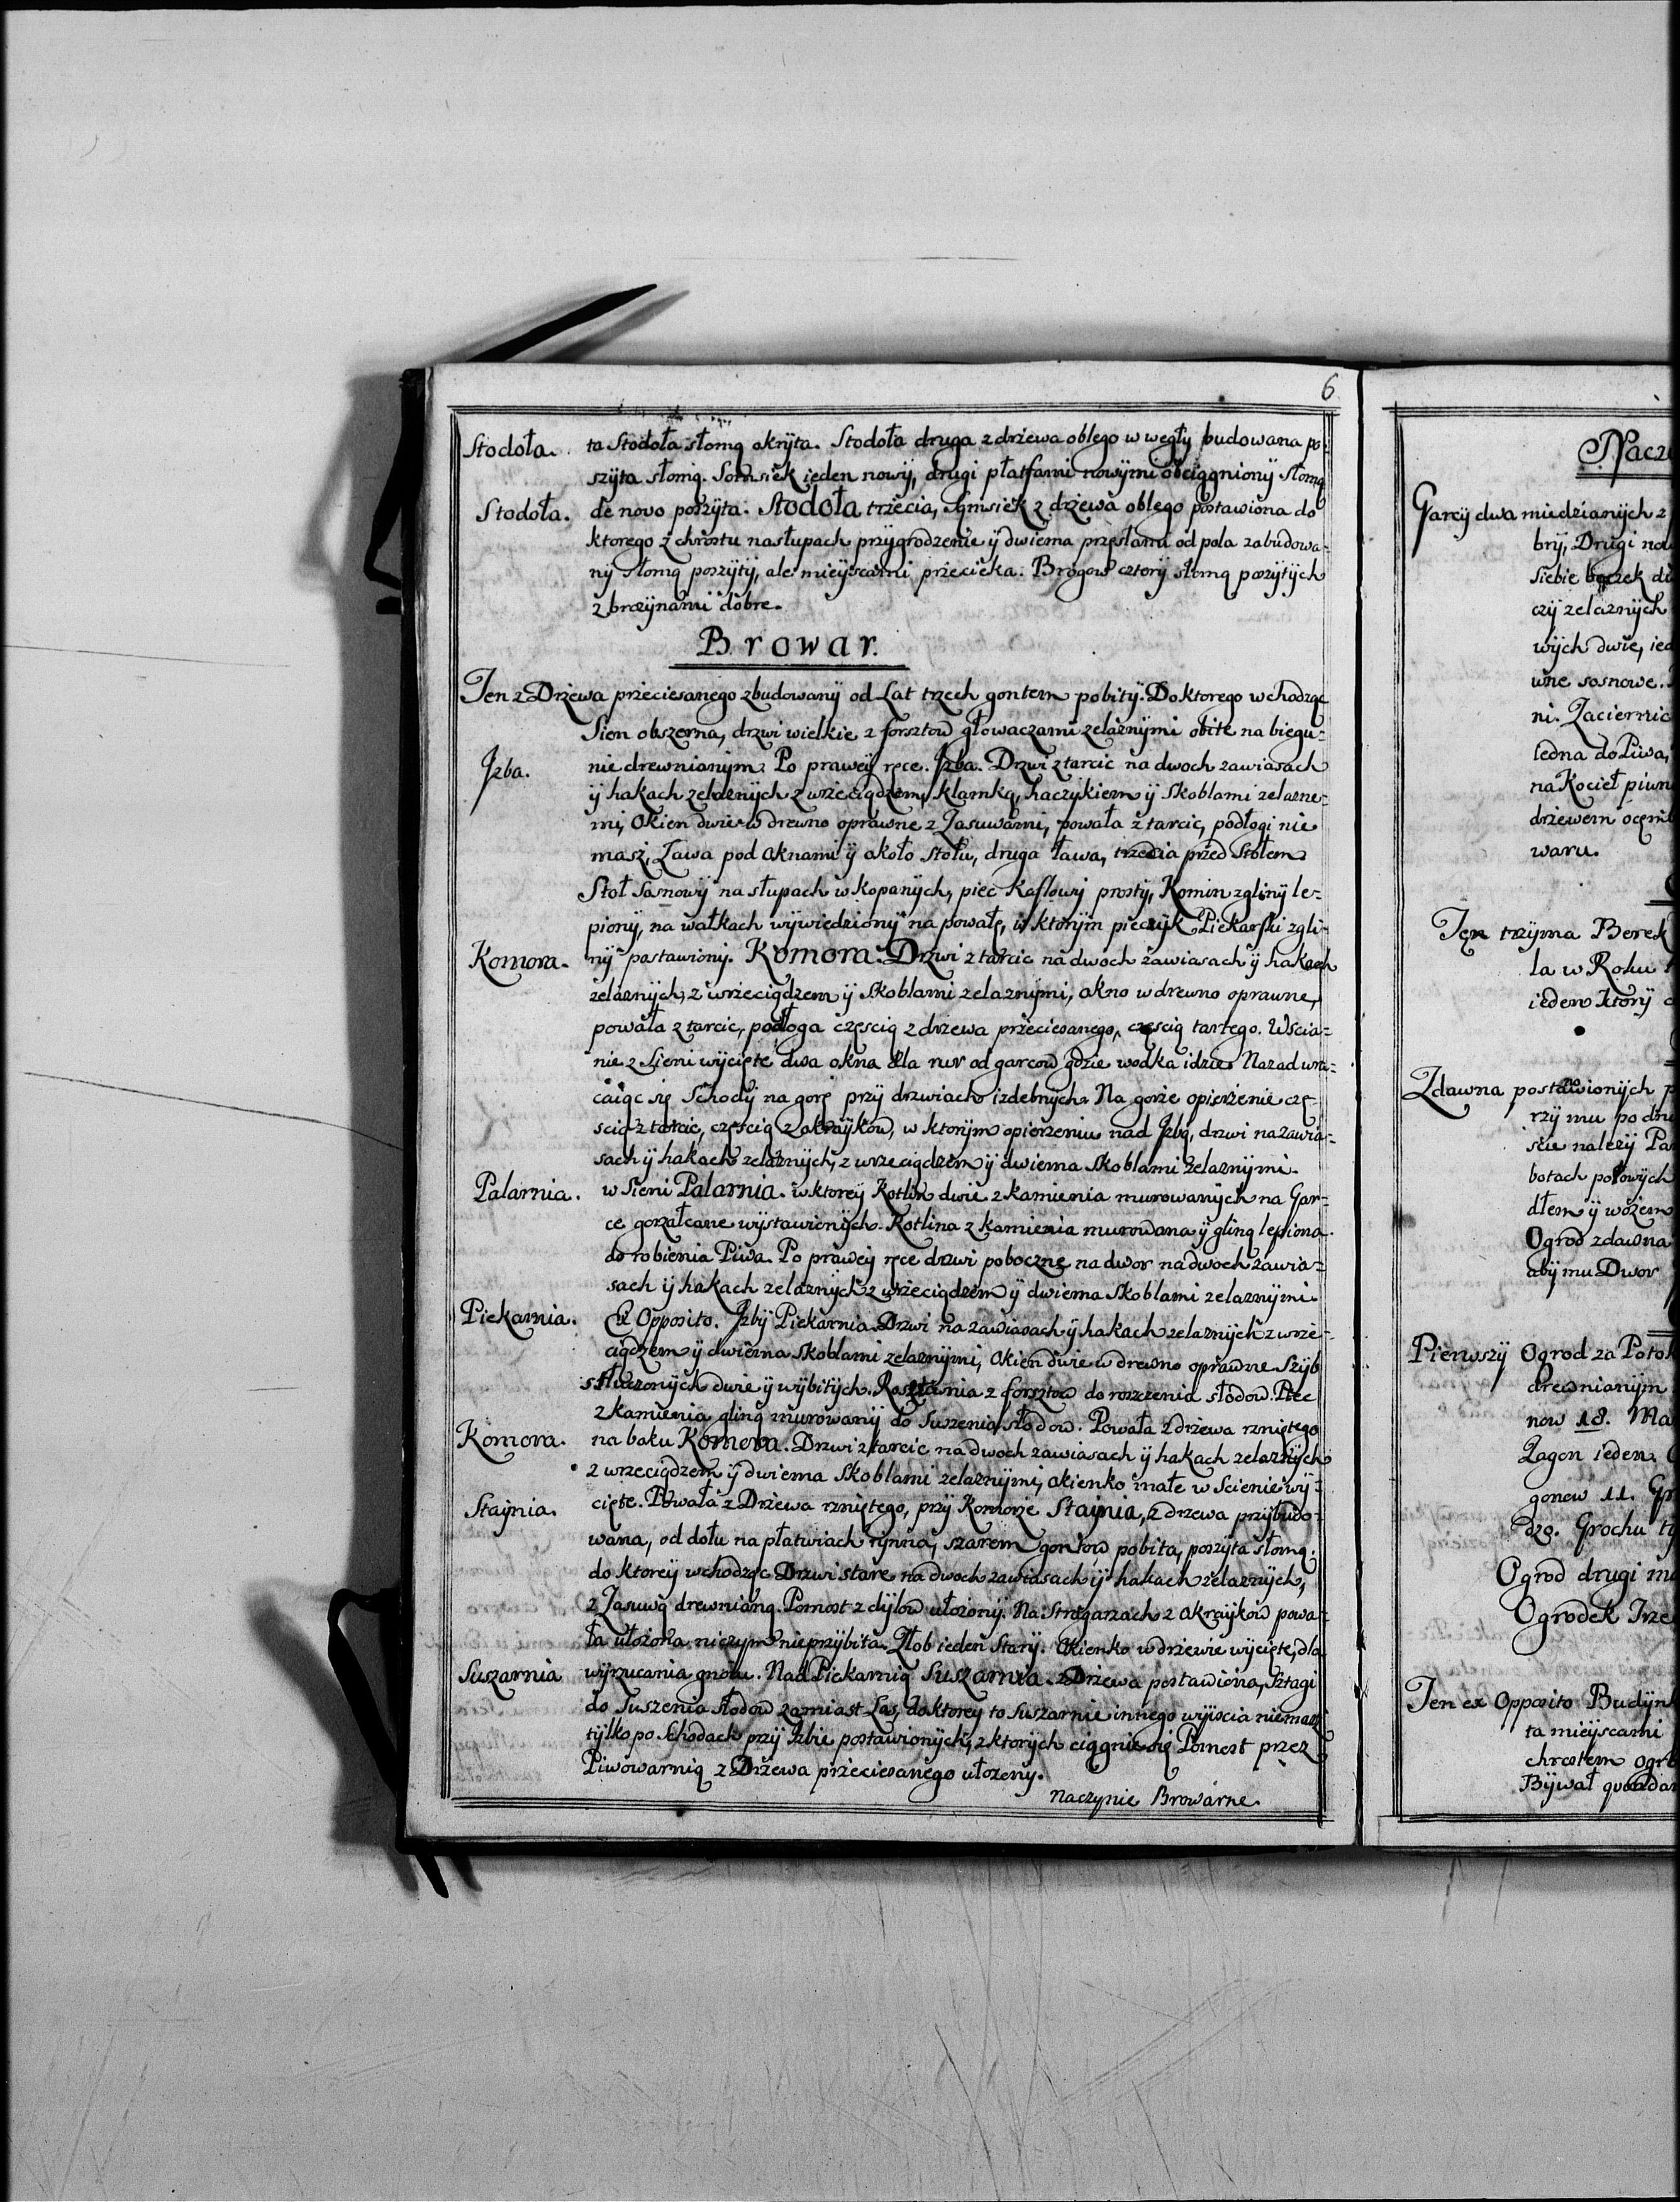 6
Stodoła. ta Stodoła słomą okryta. Stodoła druga z drzewa oblego w węgły budowana po-
szyta słomą. Somsiek ieden nowÿ, drugi płatfami nowÿmi obciągnionÿ Słomą
Stodoła. de novo poszÿta. Stodoła trzecia, Sąmsiek z drzewa oblego postawiona do
ktorego z chrostu na słupach przÿgrodzenie ÿ dwiema przęsłami od pola zabudowa-
nÿ słomą poszÿtÿ, ale mieÿscami przecieka. Brogow cztery słomą poszÿtÿch
z brozÿnami dobre.
Browar.
Ten z Drzewa przeciesanego zbudowanÿ od Lat trzech gontem pobitÿ. Do ktorego wchodząc
Sien obszerna, drzwi wielkie z forsztow głowaczami zelaznÿmi obite na biegu-
Jzba. nie drewnianÿm. Po praweÿ ręce. Jzba. Drzwi z tarcic na dwoch zawiasach
ÿ hakach zelaznÿch z wrzeciądzem, klamką, haczÿkiem ÿ Skoblami zelazne-
mi, Okien dwie w drewno oprawne z Zasuwami, powała z tarcic, podłogi nie
masz, Ława pod oknami ÿ około stołu, druga ława, trzecia przed Stołem.
Stoł Sosnowÿ na słupach wkopanÿch, piec Kaflowÿ prostÿ, Komin z glinÿ le-
pionÿ, na wałkach wÿwiedzionÿ na powałę, w ktorÿm pieczÿk Piekarski z gli-
Komora. nÿ postawionÿ. Komora. Drzwi z tarcic na dwoch zawiasach ÿ hakach
zelaznÿch, z wrzeciądzem ÿ Skoblami zelaznÿmi, okno w drewno oprawne,
powała z tarcic, podłoga częscią z drzewa przeciesanego, częscią tartego. W scia-
nie z Sieni wÿcięte dwa okna dla rur od garcow gdzie wodka idzie. Nazad wra-
caiąc się Schodÿ na gorę przÿ drzwiach izdebnÿch. Na gorze opierzenie czę-
scią z tarcic, częscią z okraÿkow, w ktorÿm opierzeniu nad Jzbą, drzwi na zawia-
sach ÿ hakach zelaznÿch, z wrzeciądzem ÿ dwiema Skoblami zelaznÿmi.
Palarnia. w Sieni Palarnia. w ktoreÿ Kotlin dwie z kamienia murowanÿch na Gar-
ce gorzałcane wÿstawionÿch. Kotlina z kamienia murowana ÿ gliną lepiona
do robienia Piwa. Po praweÿ ręce drzwi poboczne na dwor na dwoch zawia-
sach ÿ hakach zelaznÿch z wrzeciądzem ÿ dwiema Skoblami zelaznÿmi
Piekarnia. Ex Opposito. Jzbÿ Piekarnia. Drzwi na zawiasach ÿ hakach zelaznÿch z wrze-
ciądzem ÿ dwiema Skoblami zelaznÿmi, Okien dwie w drewno oprawne Szÿb
stłuczonÿch dwie ÿ wÿbitÿch. z forsztow do roszczenia słodow. Piec
z kamienia gliną murowanÿ do Suszenia słodow. Powała z drzewa rzniętego
Komora. na boku Komora. Drzwi z tarcic na dwoch zawiasach ÿ hakach zelaznÿch
z wrzeciądzem ÿ dwiema Skoblami zelaznÿmi, okienko małe w Scienie wÿ-
Staÿnia. cięte. Powała z Drzewa rzniętego, przÿ Komorze Stajnia, z drzewa przÿbudo-
wana, od dołu na płatwiach rÿnna, szarem gontow pobita, poszÿta słomą.
do ktoreÿ wchodząc Drzwi stare na dwoch zawiasach ÿ hakach zelaznÿch,
z Zasuwą drewnianą. Pomost z dÿlow ułozonÿ. Na Stragarzach z okraÿkow powa-
ła ułozona, niczym nie przÿbita. Złob ieden Starÿ. Okienko w drzewie wÿcięte, dla
Suszarnia wÿrzucania gnoiu. Nad Piekarnią Suszarnia. z Drzewa postawiona, Sztagi
do Suszenia słodow zamiast Las, do ktorey to Suszarnie innego wÿiscia niemasz
tÿlko po Schodach przÿ Jzbie postawionÿch, z ktorÿch ciągnie się Pomost przez
Piwowarnią z Drzewa przeciesanego ułozonÿ.
Naczynie Browarne.
Nacz
Garcÿ dwa miedzianÿch z
brÿ, Drugi
Siebie beczek
czÿ zelaznÿch
wÿch dwie,
wne sosnowe.
ni.
iedna do Piwa,
na Kocieł
drzewem
waru.
Ten trzÿma Berek
la w Roku
ieden ktorÿ
Zdawna postawionÿch
rzÿ mu po
scie nalezÿ
botach polowÿch
dłem ÿ wozem
Ogrod zdawna
abÿ mu Dwor
Pierwszÿ Ogrod za Potok
drewnianÿm
now 18.
Zagon ieden.
gonow 11.
dzo. Grochu
Ogrod drugi
Ogrodek
Ten ex Opposito
ta mieÿscami
chrostem
Bÿwał